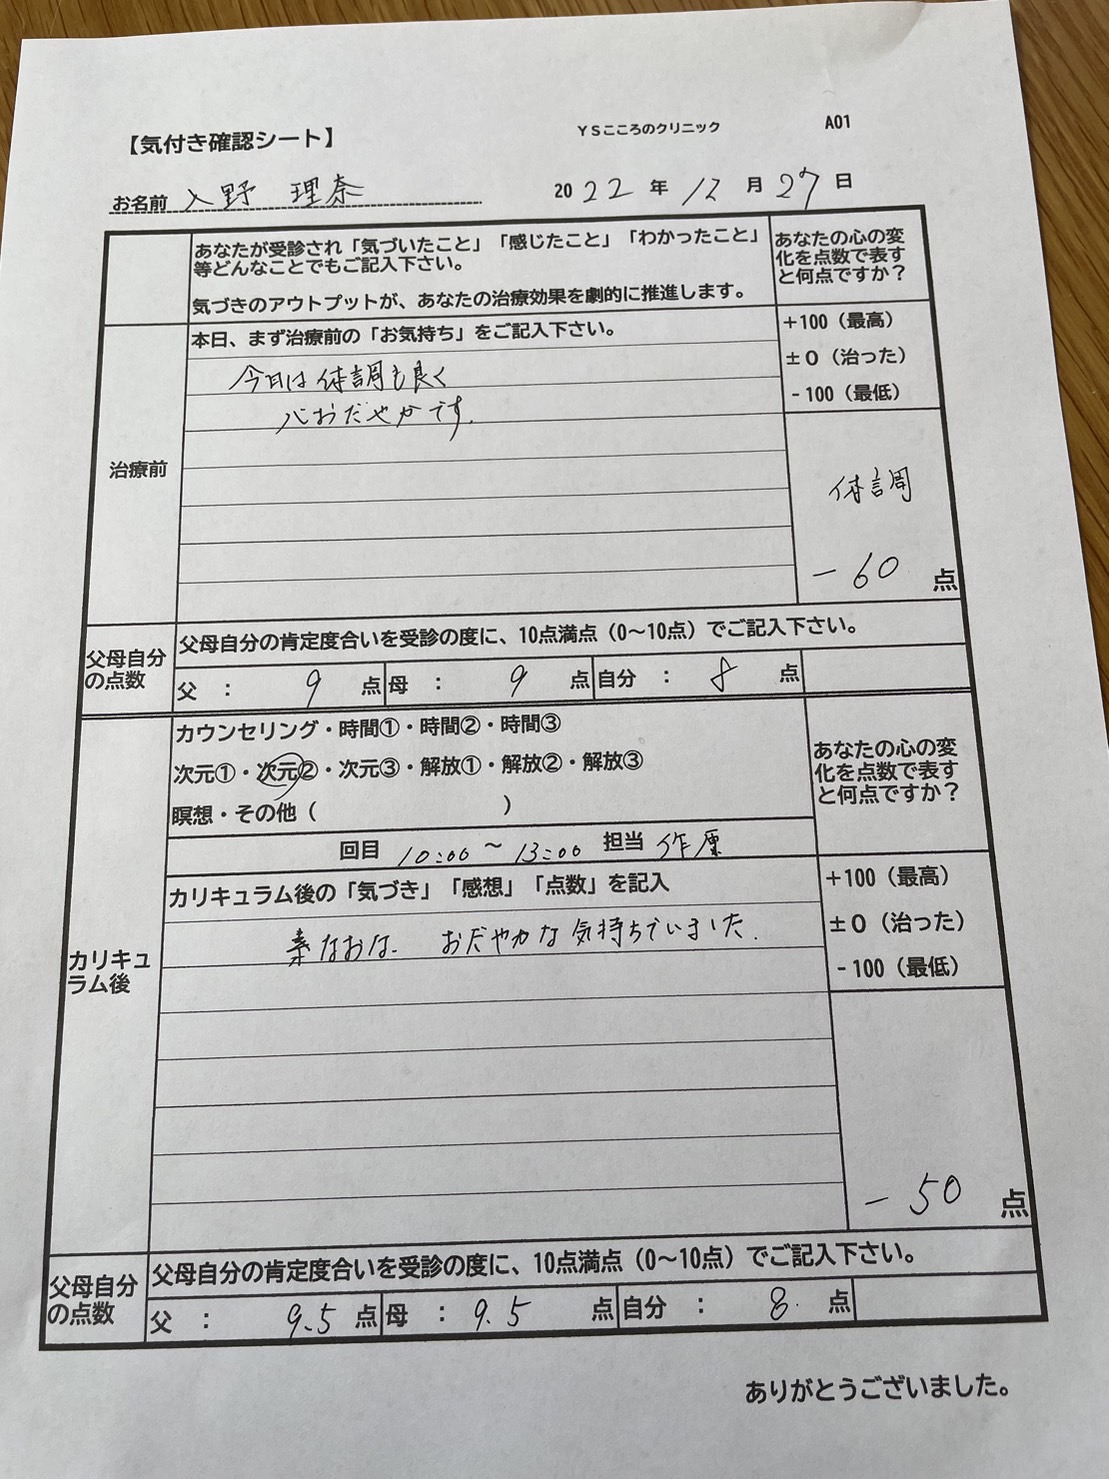 【気付き確認シート】 YSこころのクリニック A01
お名前 入野 理奈 2022年12月27日
あなたが受診され「気づいたこと」「感じたこと」「わかったこと」
等どんなことでもご記入下さい。
気づきのアウトプットが、あなたの治療効果を劇的に推進します。
あなたの心の変
化を点数で表す
と何点ですか？
治療前
本日、まず治療前の「お気持ち」をご記入下さい。
今日は体調も良く
心おだやかです.
+100（最高）
±0（治った）
-100（最低）
体調
-60 点
父母自分
の点数
父母自分の肯定度合いを受診の度に、10点満点（0～10点）でご記入下さい。
父 ： 9 点 母 ： 9 点 自分 ： 8 点
カリキュ
ラム後
カウンセリング・時間①・時間②・時間③
次元①・次元②・次元③・解放①・解放②・解放③
瞑想・その他（ ）
回目 10:00 ～ 13:00 担当 作原
あなたの心の変
化を点数で表す
と何点ですか？
カリキュラム後の「気づき」「感想」「点数」を記入
素なおな、おだやかな気持ちでいました.
+100（最高）
±0（治った）
-100（最低）
-50 点
父母自分
の点数
父母自分の肯定度合いを受診の度に、10点満点（0～10点）でご記入下さい。
父 ： 9.5 点 母 ： 9.5 点 自分 ： 8. 点
ありがとうございました。